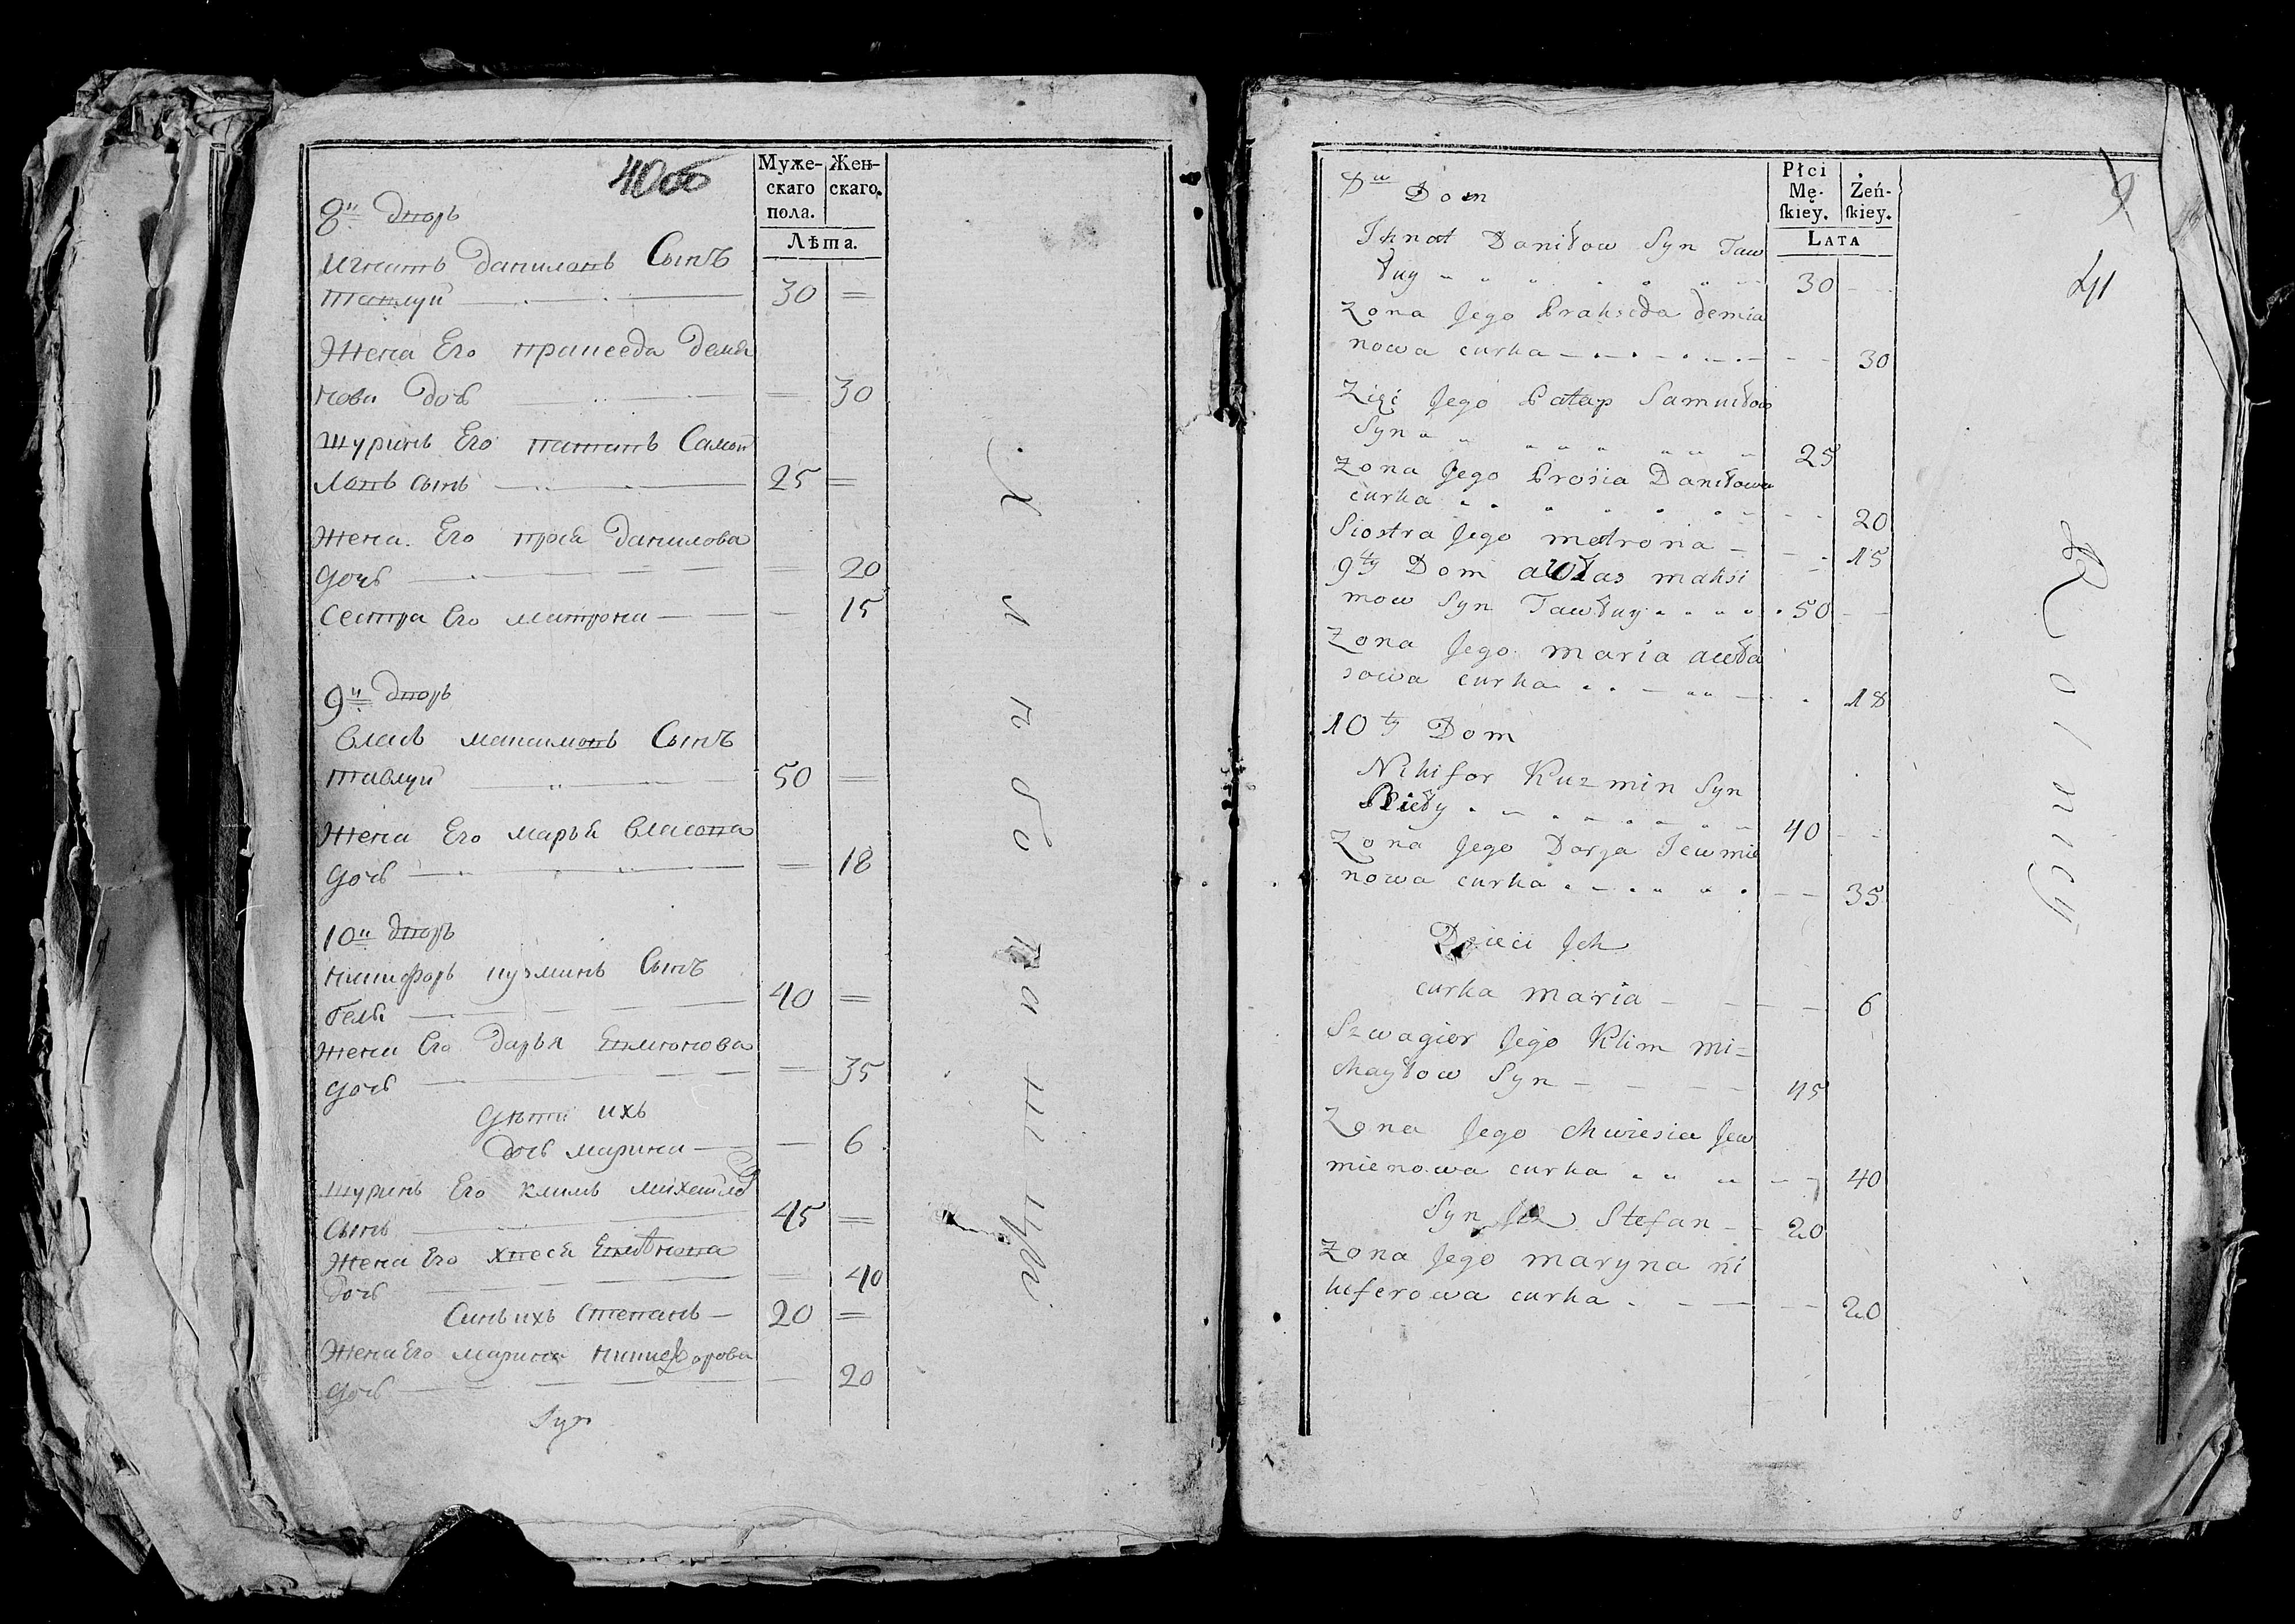 40об
Муже-
скаго
пола.
Жен-
скаго.
Лѣта.
8й дворъ
Игнатъ Даниловъ Сынъ
Тавлуй 30 =
Жена Его Пракседа Демья
нова Дочь — 30
Шуринъ Его Патапъ Самой
ловъ сынъ 25 =
Жена Его Прося Данилова
дочь — 20
Сестра Его Матрона — 15
9й дворъ
Власъ Максимовъ Сынъ
Тавлуй 50 =
Жена Его Марья Власова
дочь — 18
10й дворъ
Никифоръ Кузминъ Сынъ
40 =
Жена Его Дарья Евменова
дочь — 35
дѣти ихъ
дочь Марина — 6
Шуринъ Его Климъ Михайло
Сынъ 45 =
Жена Его Хвеся Евменова
дочь — 40
Сынъ ихъ Степанъ — 20 =
Жена Его Марина Никифорова
дочь — 20
Syn
Хлѣбопашцы
9
41
Płci
Mę-
ſkiey.
Żeń-
ſkiey.
LATA
Dom
Ihnat Daniłow Syn Taw
łuy 30 —
Zona Jego Prakseda demia
nowa curka — 30
Zięć Jego Patap Samuiłow
Syn 25
Zona Jego Prosia Daniłowa
curka — 20
Siostra Jego matrona — 15
9ty Dom awłas maksi
mow Syn Tawłuy 50 —
Zona Jego maria awła
sowa curka 18
10ty Dom
Nikifor Kuzmin Syn
Biały 40 —
Zona Jego Darja Jewmie
nowa curka — 35
Dzieci Jch
curka maria — 6
Szwagier Jego Klim mi-
chayłow Syn 45
Zona Jego chwiesia Jew
mienowa curka — 40
Syn Jch Stefan — 20
Zona Jego maryna ni
kiferowa curka — 20
Rolnicy